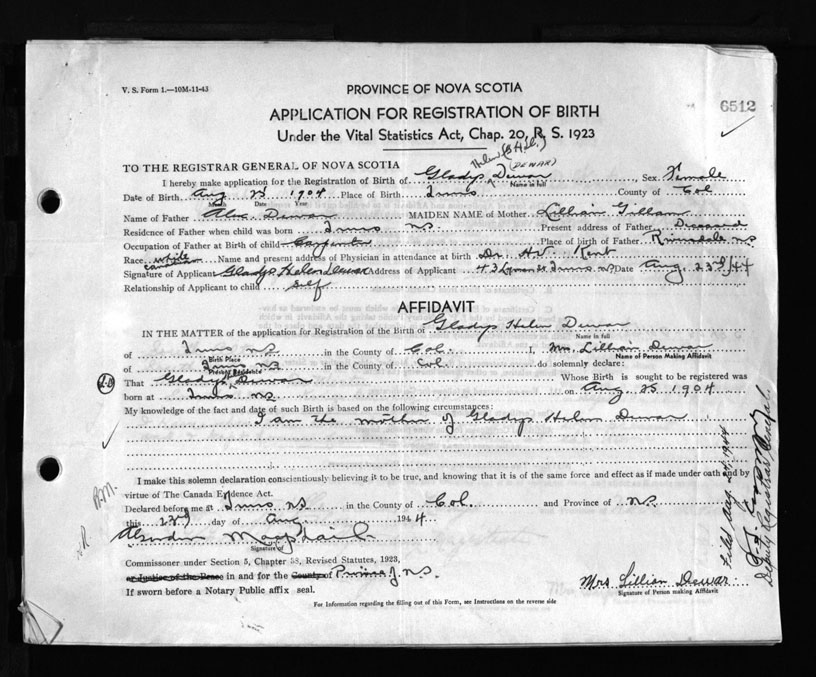 V. S. Form 1.—10M-11-43
PROVINCE OF NOVA SCOTIA
6512
APPLICATION FOR REGISTRATION OF BIRTH
Under the Vital Statistics Act, Chap. 20, R. S. 1923
Helen
(DEWAR)
TO THE REGISTRAR GENERAL OF NOVA SCOTIA
I hereby make application for the Registration of Birth of Gladys Dewar Sex Female
Name in full
Date of Birth Aug 25 1904 Place of Birth Truro County of Col
Month Date Year
Name of Father Alex Dewar MAIDEN NAME of Mother Lillian Gillam
Residence of Father when child was born Truro NS. Present address of Father Deceased
Occupation of Father at Birth of child Carpenter Place of birth of Father N.S.
Race white Name and present address of Physician in attendance at birth Dr. H.V. Kent
Canadian
Signature of Applicant Gladys Helen Dewar Address of Applicant Truro N.S. Date Aug. 23rd/44
Relationship of Applicant to child self
AFFIDAVIT
IN THE MATTER of the application for Registration of the Birth of Gladys Helen Dewar
Name in full
of Truro NS in the County of Col. I, Mrs. Lillian Dewar
Birth Place Name of Person Making Affidavit
of Truro NS in the County of Col. do solemnly declare:
Present Residence
That Gladys Dewar Whose Birth is sought to be registered was
born at Truro NS on Aug 25 1904
My knowledge of the fact and date of such Birth is based on the following circumstances:
I am the mother of Gladys Helen Dewar
I make this solemn declaration conscientiously believing it to be true, and knowing that it is of the same force and effect as if made under oath and by
virtue of The Canada Evidence Act.
Declared before me at Truro NS in the County of Col. and Province of N.S.
this 23rd day of Aug 1944
Signature of
Commissioner under Section 5, Chapter 38, Revised Statutes, 1923,
or Justice of the Peace in and for the County of Province of N.S.
Mrs Lillian Dewar
Signature of Person making Affidavit
If sworn before a Notary Public affix seal.
For Information regarding the filling out of this Form, see Instructions on the reverse side
Filed Aug. 24 1944
Deputy Registrar General.